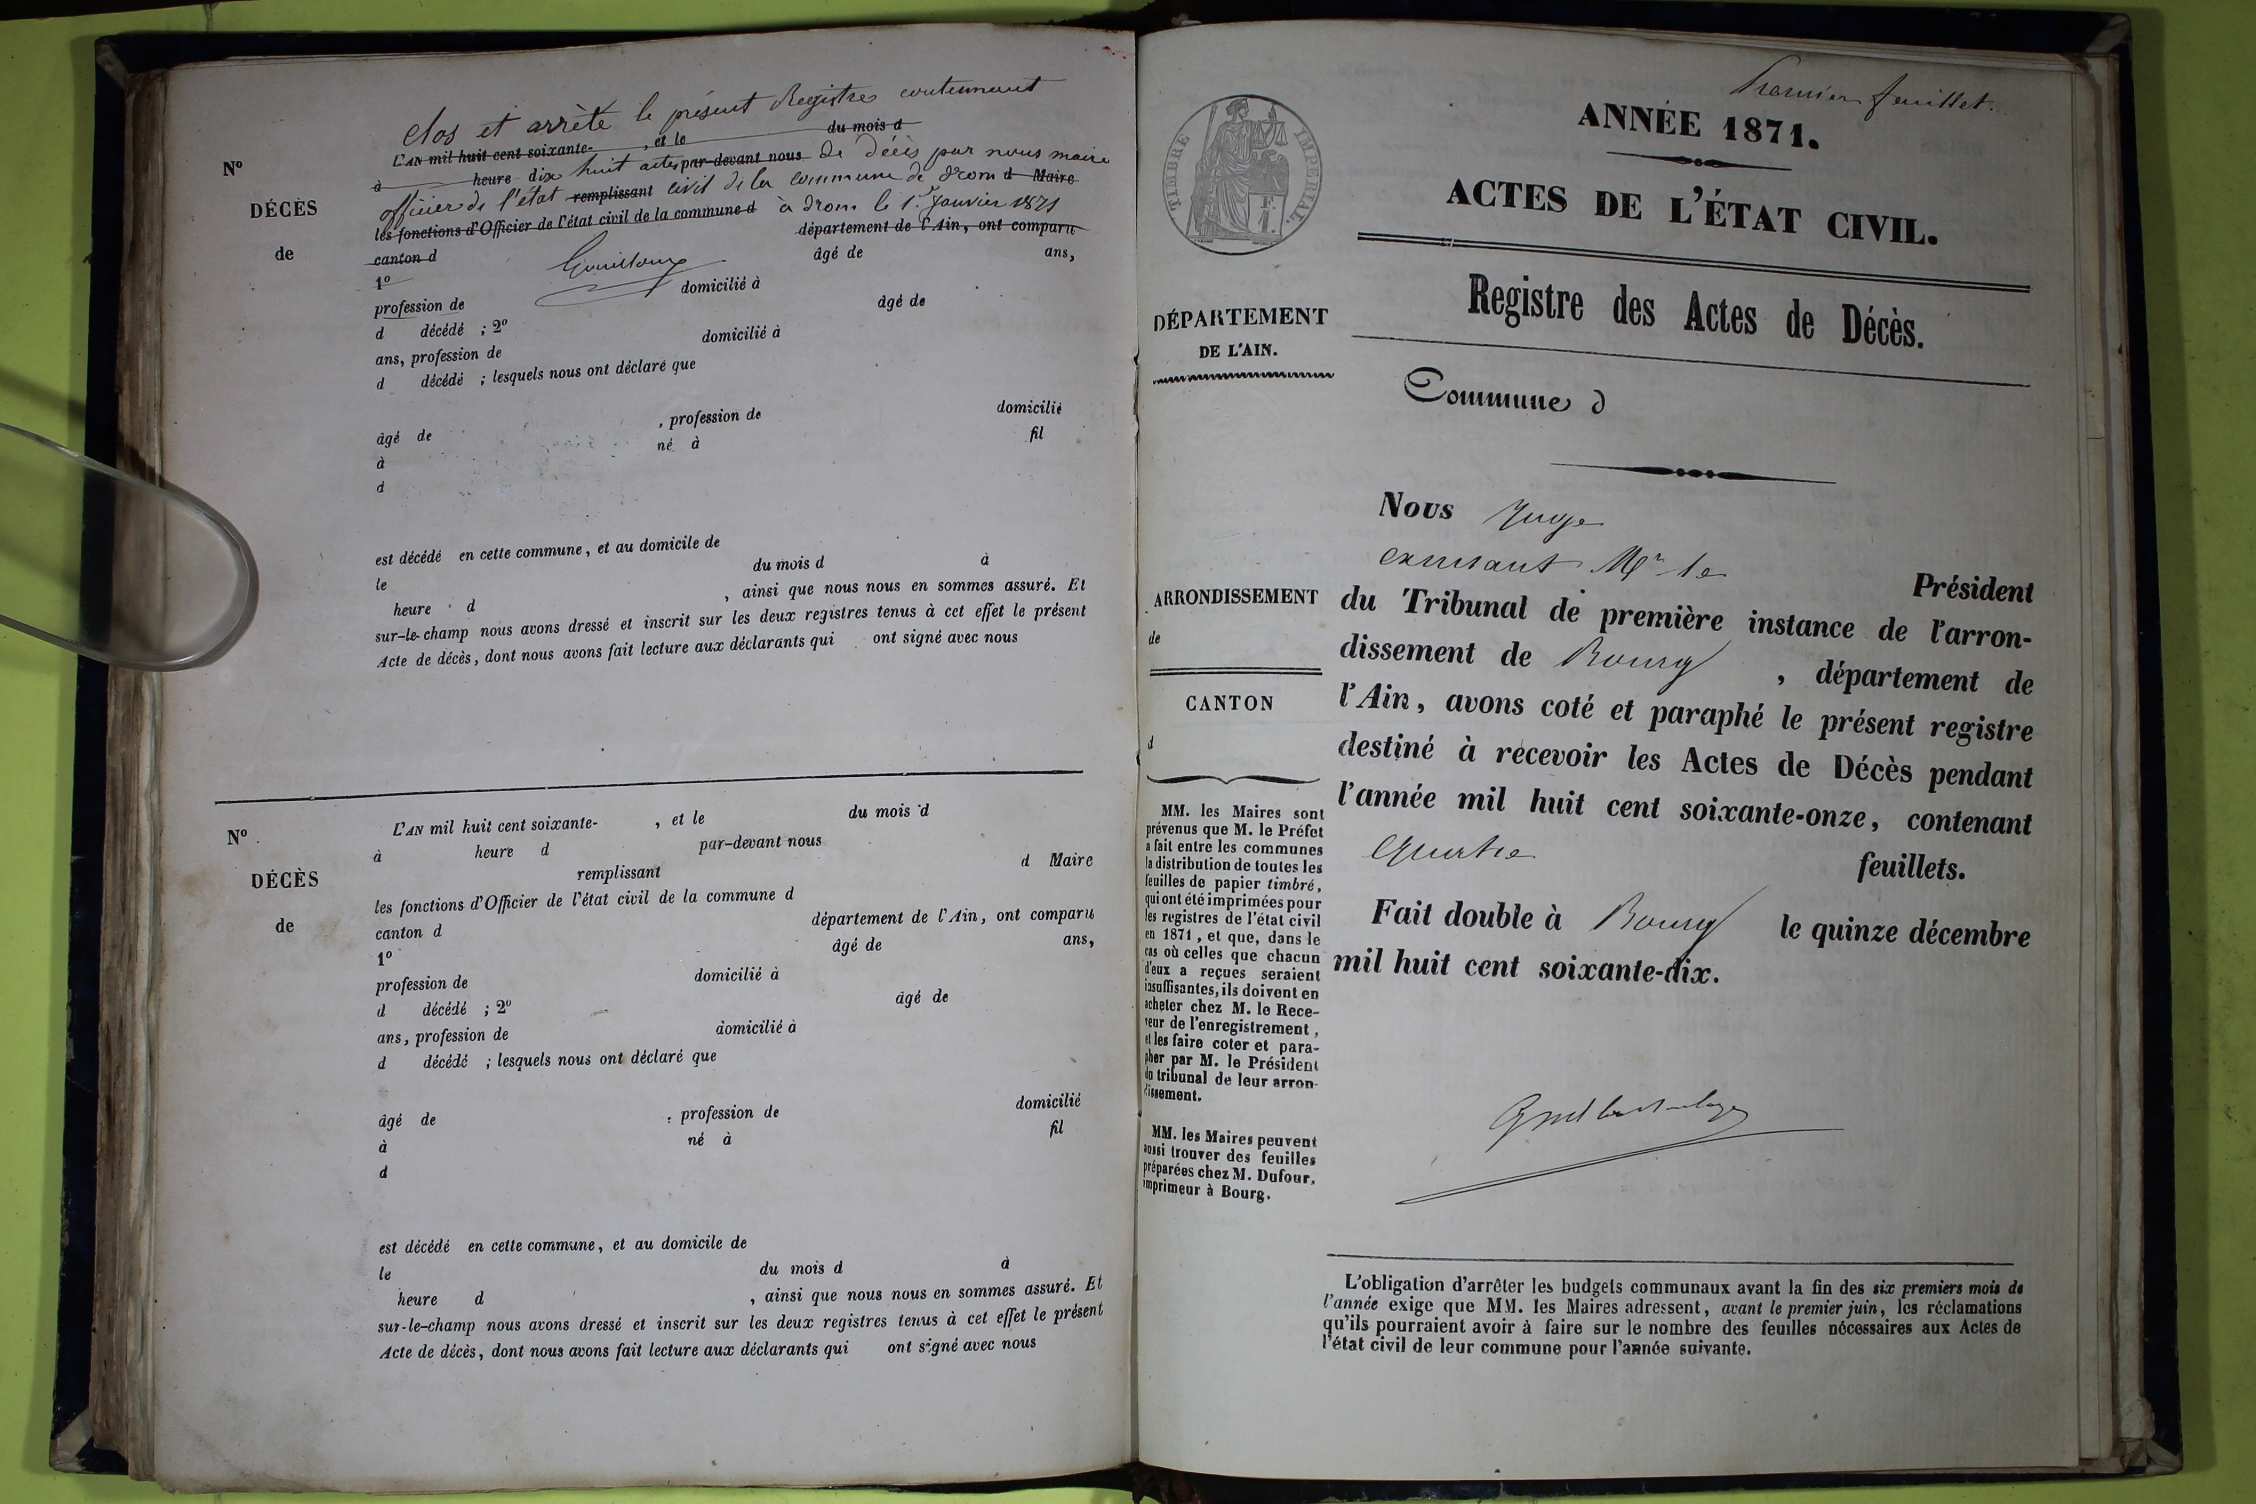 clos et arrêté le présent Registre contennant
L'AN mil huit cent soixante- , et le du mois d
à heure dix huit actes par-devant nous de décès par nous maire
officier de l'état remplissant civil de la commune de drom d Maire
les fonctions d'Officier de l'état civil de la commune d à drom le 1er Janvier 1871
N°
DÉCÈS
de
canton d département de l'Ain, ont comparu
1° âgé de ans,
profession de domicilié à
d décédé ; 2° âgé de
ans, profession de domicilié à
d décédé ; lesquels nous ont déclaré que
âgé de , profession de domicilié
à né à fil
d
est décédé en cette commune, et au domicile de
le du mois d à
heure d , ainsi que nous nous en sommes assuré. Et
sur-le-champ nous avons dressé et inscrit sur les deux registres tenus à cet effet le présent
Acte de décès, dont nous avons fait lecture aux déclarants qui ont signé avec nous
N°
DÉCÈS
de
L'AN mil huit cent soixante- , et le du mois d
à heure d par-devant nous
remplissant d Maire
les fonctions d'Officier de l'état civil de la commune d
canton d département de l'Ain, ont comparu
1° âgé de ans,
profession de domicilié à
d décédé ; 2° âgé de
ans, profession de domicilié à
d décédé ; lesquels nous ont déclaré que
âgé de , profession de domicilié
à né à fil
d
est décédé en cette commune, et au domicile de
le du mois d à
heure d , ainsi que nous nous en sommes assuré. Et
sur-le-champ nous avons dressé et inscrit sur les deux registres tenus à cet effet le présent
Acte de décès, dont nous avons fait lecture aux déclarants qui ont signé avec nous
Premier feuillet.
TIMBRE IMPÉRIAL.
F.
1.
ANNÉE 1871.
ACTES DE L'ÉTAT CIVIL.
Registre des Actes de Décès.
DÉPARTEMENT
DE L'AIN.
Commune d
ARRONDISSEMENT
de
CANTON
d
MM. les Maires sont
prévenus que M. le Préfet
a fait entre les communes
la distribution de toutes les
feuilles de papier timbré,
qui ont été imprimées pour
les registres de l'état civil
en 1871, et que, dans le
cas où celles que chacun
d'eux a reçues seraient
insuffisantes, ils doivent en
acheter chez M. le Rece-
veur de l'enregistrement,
et les faire coter et para-
pher par M. le Président
du tribunal de leur arron-
dissement.
MM. les Maires peuvent
aussi trouver des feuilles
préparées chez M. Dufour,
imprimeur à Bourg.
Nous Juge
Mr le Président
du Tribunal de première instance de l'arron-
dissement de Bourg , département de
l'Ain, avons coté et paraphé le présent registre
destiné à recevoir les Actes de Décès pendant
l'année mil huit cent soixante-onze, contenant
Quatre feuillets.
Fait double à Bourg le quinze décembre
mil huit cent soixante-dix.
L'obligation d'arrêter les budgets communaux avant la fin des six premiers mois de
l'année exige que MM. les Maires adressent, avant le premier juin, les réclamations
qu'ils pourraient avoir à faire sur le nombre des feuilles nécessaires aux Actes de
l'état civil de leur commune pour l'année suivante.